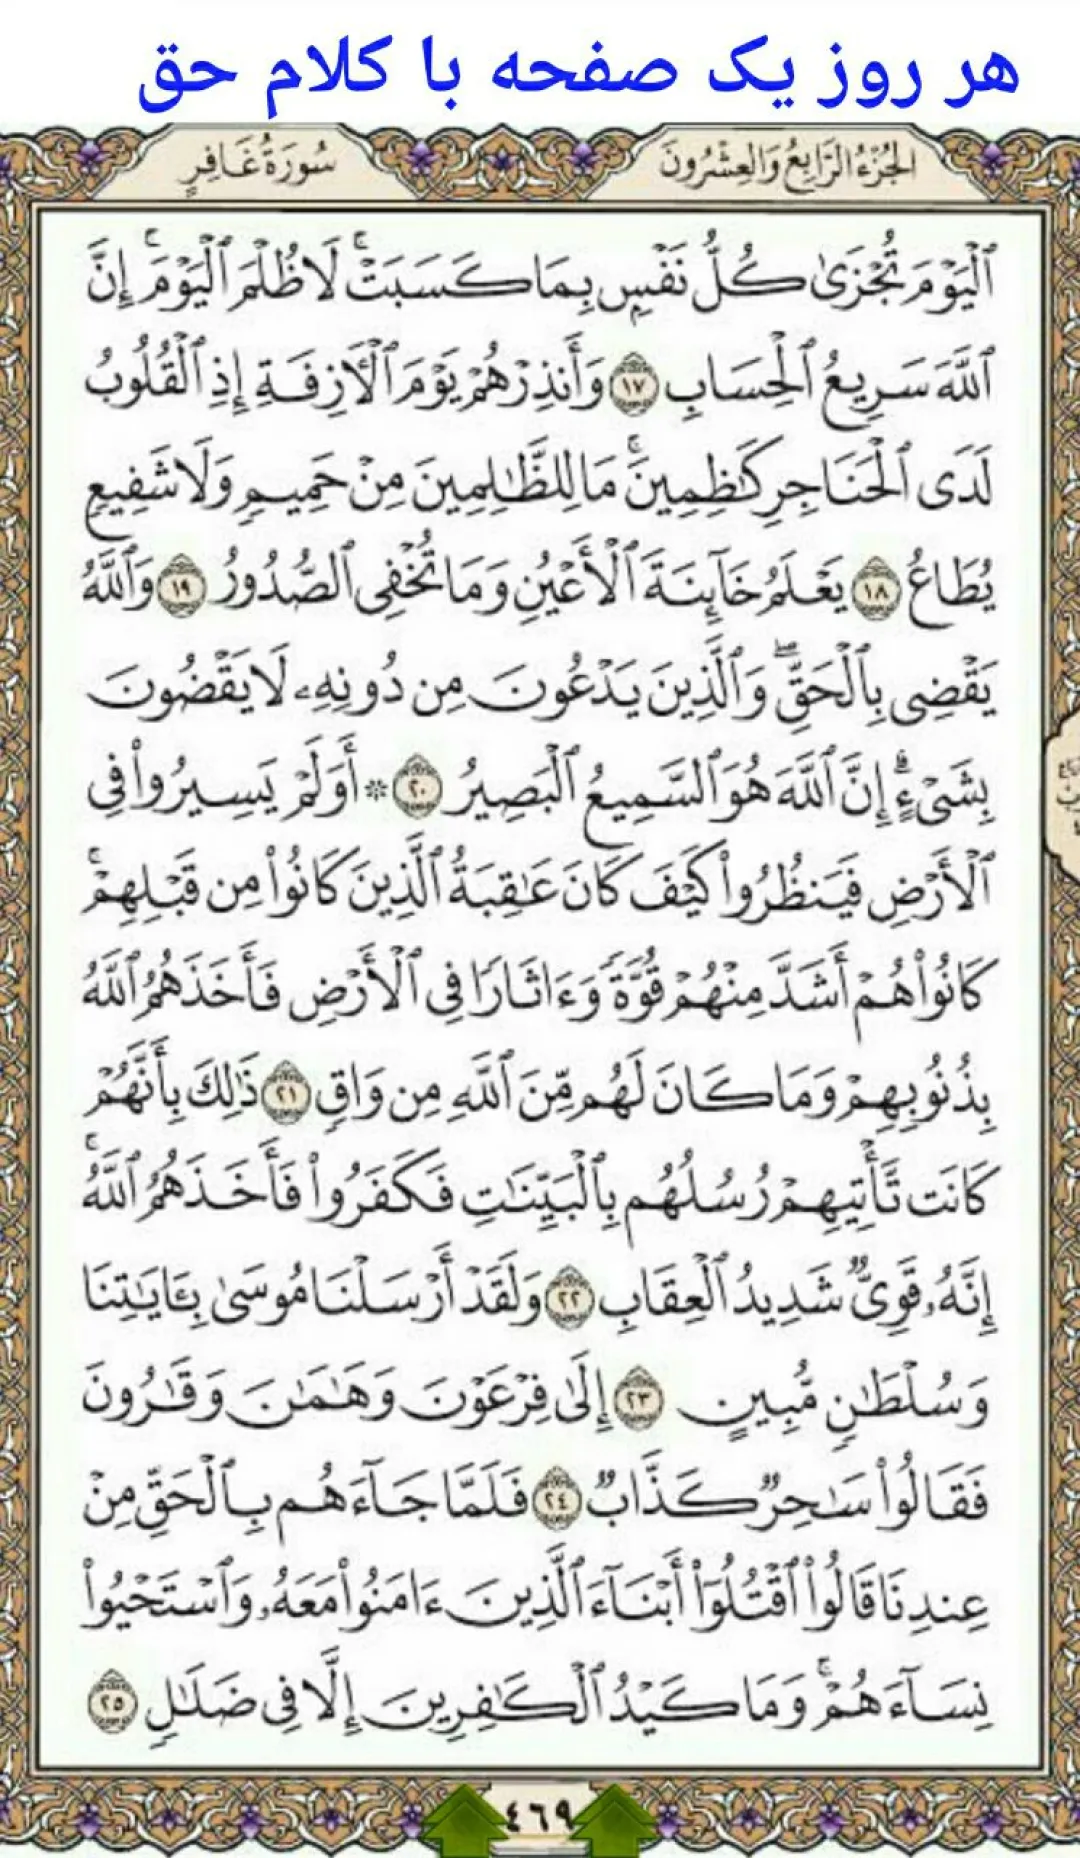 هر روز یک صفحه با کلام حق
الجُزْءُ الرَّابِعُ وَالعِشْرُونَ
سُورَةُ غَافِرٍ
ٱلْيَوْمَ تُجْزَىٰ كُلُّ نَفْسٍۭ بِمَا كَسَبَتْ ۚ لَا ظُلْمَ ٱلْيَوْمَ ۚ إِنَّ
ٱللَّهَ سَرِيعُ ٱلْحِسَابِ ١٧ وَأَنذِرْهُمْ يَوْمَ ٱلْأٓزِفَةِ إِذِ ٱلْقُلُوبُ
لَدَى ٱلْحَنَاجِرِ كَـٰظِمِينَ ۚ مَا لِلظَّـٰلِمِينَ مِنْ حَمِيمٍ وَلَا شَفِيعٍ
يُطَاعُ ١٨ يَعْلَمُ خَآئِنَةَ ٱلْأَعْيُنِ وَمَا تُخْفِى ٱلصُّدُورُ ١٩ وَٱللَّهُ
يَقْضِى بِٱلْحَقِّ ۖ وَٱلَّذِينَ يَدْعُونَ مِن دُونِهِۦ لَا يَقْضُونَ
بِشَىْءٍ ۗ إِنَّ ٱللَّهَ هُوَ ٱلسَّمِيعُ ٱلْبَصِيرُ ٢٠ ۞ أَوَلَمْ يَسِيرُوا۟ فِى
ٱلْأَرْضِ فَيَنظُرُوا۟ كَيْفَ كَانَ عَـٰقِبَةُ ٱلَّذِينَ كَانُوا۟ مِن قَبْلِهِمْ ۚ
كَانُوا۟ هُمْ أَشَدَّ مِنْهُمْ قُوَّةً وَءَاثَارًا فِى ٱلْأَرْضِ فَأَخَذَهُمُ ٱللَّهُ
بِذُنُوبِهِمْ وَمَا كَانَ لَهُم مِّنَ ٱللَّهِ مِن وَاقٍ ٢١ ذَٰلِكَ بِأَنَّهُمْ
كَانَت تَّأْتِيهِمْ رُسُلُهُم بِٱلْبَيِّنَـٰتِ فَكَفَرُوا۟ فَأَخَذَهُمُ ٱللَّهُ ۚ
إِنَّهُۥ قَوِىٌّ شَدِيدُ ٱلْعِقَابِ ٢٢ وَلَقَدْ أَرْسَلْنَا مُوسَىٰ بِـَٔايَـٰتِنَا
وَسُلْطَـٰنٍ مُّبِينٍ ٢٣ إِلَىٰ فِرْعَوْنَ وَهَـٰمَـٰنَ وَقَـٰرُونَ
فَقَالُوا۟ سَـٰحِرٌ كَذَّابٌ ٢٤ فَلَمَّا جَآءَهُم بِٱلْحَقِّ مِنْ
عِندِنَا قَالُوا۟ ٱقْتُلُوٓا۟ أَبْنَآءَ ٱلَّذِينَ ءَامَنُوا۟ مَعَهُۥ وَٱسْتَحْيُوا۟
نِسَآءَهُمْ ۚ وَمَا كَيْدُ ٱلْكَـٰفِرِينَ إِلَّا فِى ضَلَـٰلٍ ٢٥
٤٦٩